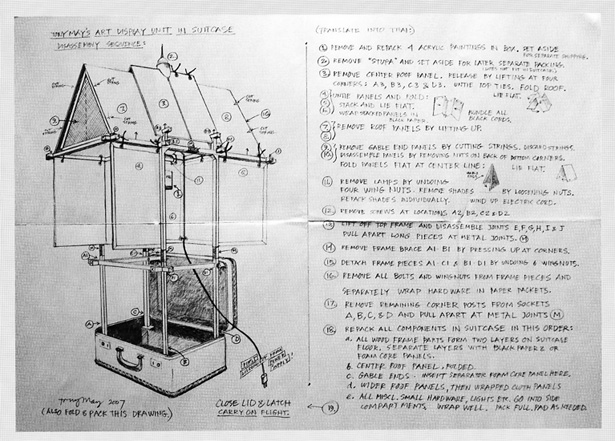 TONY MAY'S ART DISPLAY UNIT IN SUITCASE
DISASSEMBLY SEQUENCE:
TONY MAY 2007
(ALSO FOLD & PACK THIS DRAWING)
CLOSE LID & LATCH
CARRY ON FLIGHT.
(TRANSLATE INTO THAI)
1 REMOVE AND REPACK 4 ACRYLIC PAINTINGS IN BOX, SET ASIDE
FOR SEPARATE SHIPPING.
2 REMOVE "STUPA" AND SET ASIDE FOR LATER SEPARATE PACKING.
3 REMOVE CENTER ROOF PANEL. RELEASE BY LIFTING AT FOUR
CORNERS: A3, B3, C3 & D3. UNTIE TOP TIES. FOLD ROOF.
4 UNTIE PANELS AND FOLD: LIE FLAT.
5 STACK AND LIE FLAT.
6 WRAP STACKED PANELS IN BLACK PAPER
BUNDLE ALL
BLACK CORDS.
7 REMOVE ROOF PANELS BY LIFTING UP.
8
9 REMOVE GABLE END PANELS BY CUTTING STRINGS, DISCARD STRINGS.
10 DISASSEMBLE PANELS BY REMOVING NUTS ON BACK OF BOTTOM CORNERS.
FOLD PANELS FLAT AT CENTER LINE: LIE FLAT.
11 REMOVE LAMPS BY UNDOING
FOUR WING NUTS. REMOVE SHADES BY LOOSENING NUTS.
REPACK SHADES INDIVIDUALLY. WIND UP ELECTRIC CORD.
12 REMOVE SCREWS AT LOCATIONS A2, B2, C2 & D2
13 LIFT OFF TOP FRAME AND DISASSEMBLE JOINTS E, F, G, H, I & J
PULL APART LONG PIECES AT METAL JOINTS. M
14 REMOVE FRAME BRACE A1-B1 BY PRESSING UP AT CORNERS.
15 DETATH FRAME PIECES A1-C1 & B1-D1 BY UNDOING 6 WINGNUTS.
16 REMOVE ALL BOLTS AND WINGNUTS FROM FRAME PIECES AND
SEPARATELY WRAP HARDWARE IN PAPER PACKETS.
17 REMOVE REMAINING CORNER POSTS FROM SOCKETS
A, B, C, & D AND PULL APART AT METAL JOINTS M
18 REPACK ALL COMPONENTS IN SUITCASE IN THIS ORDER:
a. ALL WOOD FRAME PARTS FORM TWO LAYERS ON SUITCASE
FLOOR. SEPARATE LAYERS WITH BLACK PAPER & OR
FOAM CORE PANELS.
b. CENTER ROOF PANEL, FOLDED.
c. GABLE ENDS - INSERT SEPARATOR FOAM CORE PANEL HERE.
d. WIDER ROOF PANELS, THEN WRAPPED CLOTH PANELS
e. ALL MISCL. SMALL HARDWARE, LIGHTS ETC. GO INTO SIDE
COMPARTMENTS, WRAP WELL. PACK FULL, PAD AS NEEDED.
19